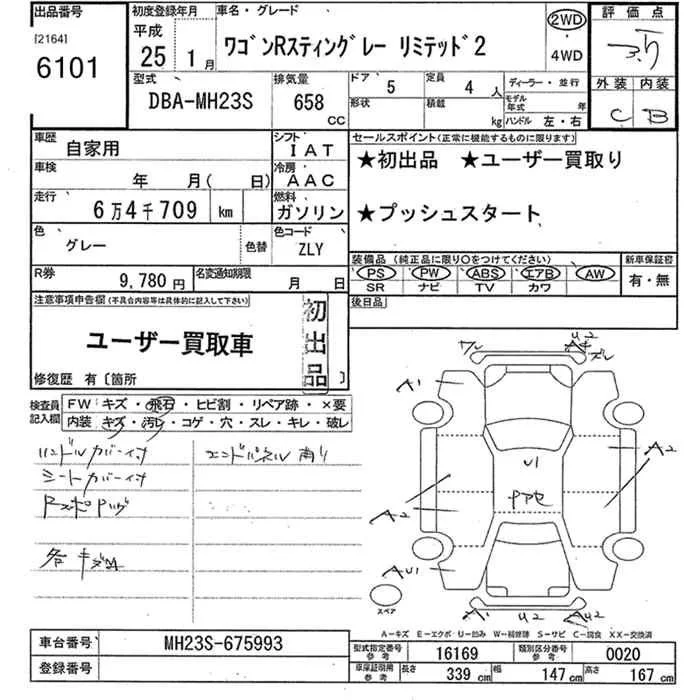 出品番号
[2164]
6101
初度登録年月
平成
25 1月
車名・グレード
ワゴンRスティングレー リミテッド2
2WD
・
4WD
評価点
3.5
外装 内装
C B
型式
DBA-MH23S
排気量
658
CC
ドア 5
定員 4 人
形状
積載 kg
ディーラー・並行
モデル年式 年
ハンドル 左・右
車歴
自家用
シフト
IAT
車検
年 月( 日)
冷房
AAC
走行
6万4千709 km
燃料
ガソリン
色
グレー
色替
色コード
ZLY
R券
9,780円
名変通知期限
月 日
セールスポイント(正常に機能するものに限ります)
★初出品 ★ユーザー買取り
★プッシュスタート
装備品 (純正品に限り○をつけてください)
PS PW ABS エアB AW
SR ナビ TV カワ
新車保証書
有・無
後日品
注意事項申告欄(不具合内容等は具体的に記入して下さい)
ユーザー買取車
初出品
修復歴 有〔箇所 〕
検査員記入欄
FW:キズ・飛石・ヒビ割・リペア跡・×要
内装:キズ・汚レ・コゲ・穴・スレ・キレ・破レ
ハンドルカバー付
シートカバー付
エンドパネル曲り
各キズM
U2
A1
A2
U1
A2
AU1
A1
U2
スペア
A-キズ E-エクボ U-凹み W-補修跡 S-サビ C-腐食 XX-交換済
車台番号
MH23S-675993
登録番号
型式指定番号
参考
16169
類別区分番号
参考
0020
車庫証明用
参考
長さ 339 cm
幅 147 cm
高さ 167 cm